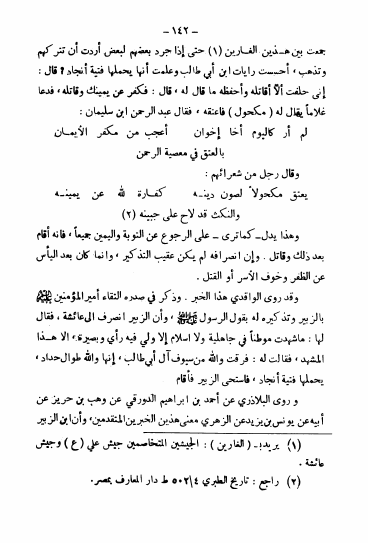 - ١٤٢ -
جمعت بين هـذين الغارين (١) حتى إذا جرد بعضهم لبعض أردت أن تتركهم
وتذهب، أحسست رايات ابن أبي طالب وعلمت أنها يحملها فتية أنجاد؟ قال:
إني حلفت ألاّ أقاتله وأحفظه ما قال له، قال: فكفر عن يمينك وقاتله، فدعا
غلاماً يقال له (مكحول) فاعتقه، فقال عبد الرحمن ابن سليمان:
لم أر كاليوم أخا إخوان أعجب من مكفر الأيمـان
بالعتق في معصية الرحمن
وقال رجل من شعرائهم:
يعتق مكحولاً لصون دينـه كفـارة لله عن يمينـه
والنكث قد لاح على جبينه (٢)
وهذا يدل ـ كما ترى ـ على الرجوع عن التوبة واليمين جميعاً، فانه أقام
بعد ذلك وقاتل. وإن انصرافه لم يكن عقيب التذكير، وانما كان بعد اليأس
عن الظفر وخوف الأسر أو القتل.
وقد روى الواقدي هذا الخبر. وذكر في صدره التقاء أمير المؤمنين ﷺ
بالزبير وتذكيره له بقول الرسول ﷺ، وأن الزبير انصرف الى عائشة، فقال
لها: ماشهدت موطناً في جاهلية ولا اسلام إلا ولي فيه رأي وبصيرة، الا هـذا
المشهد، فقالت له: فرقت والله من سيوف آل أبي طالب، إنها والله طوال حداد،
يحملها فتية أنجاد، فاستحى الزبير فأقام
و روى البلاذري عن أحمد بن ابراهيم الدورقي عن وهب بن حريز عن
أبيه عن يونس بن يزيد عن الزهري معنى هذين الخبرين المتقدمين، وأن ابن الزبير
(١) يريد بـ (الغارين): الجيشين المتخاصمين جيش علي (ع) وجيش
عائشة.
(٢) راجع: تاريخ الطبري ٥٠٢/٤ ط دار المعارف بمصر.